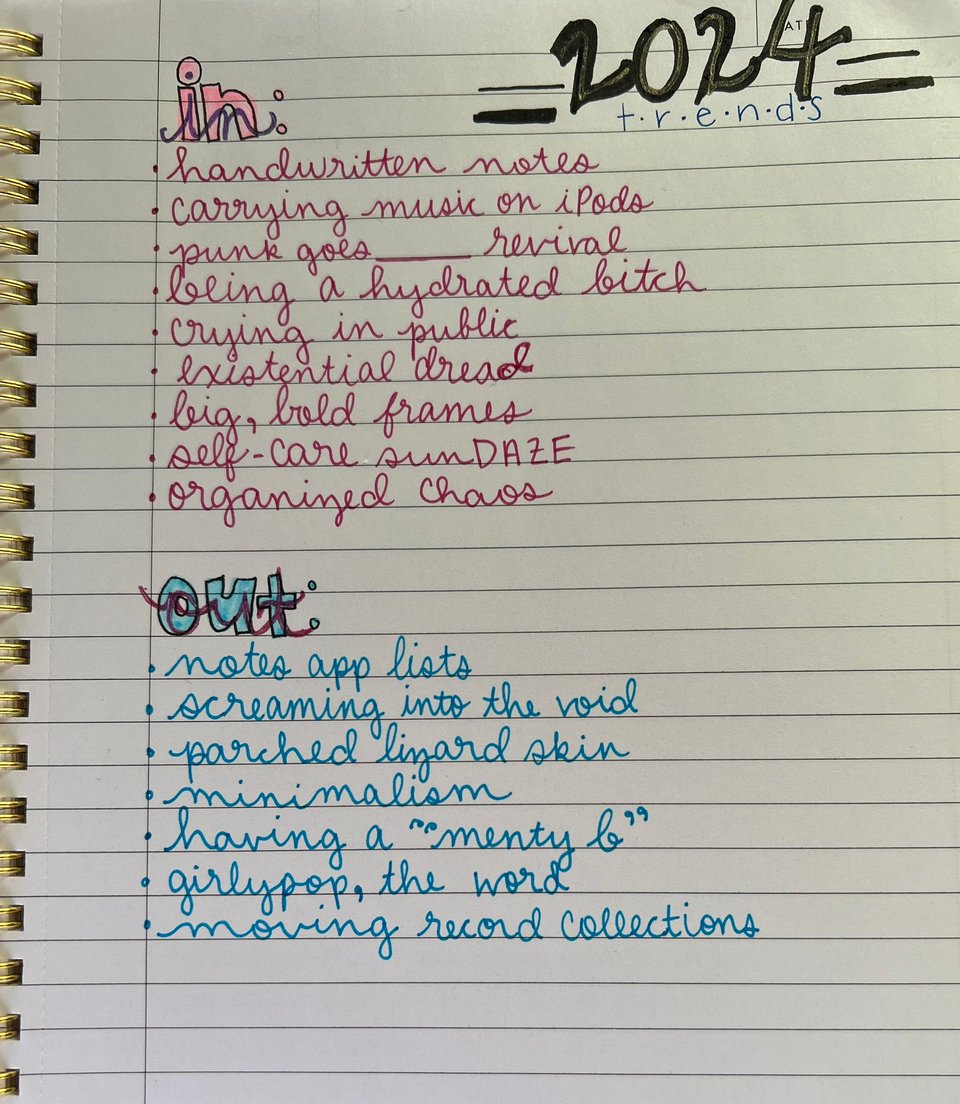 2024
AT
t.r.e.n.d.s
in:
• handwritten notes
• carrying music on iPods
• punk goes _____ revival
• being a hydrated bitch
• crying in public
• existential dread
• big, bold frames
• self-care sunDAZE
• organized chaos
out:
• notes app lists
• screaming into the void
• parched lizard skin
• minimalism
• having a ““menty b””
• girlypop, the word
• moving record collections